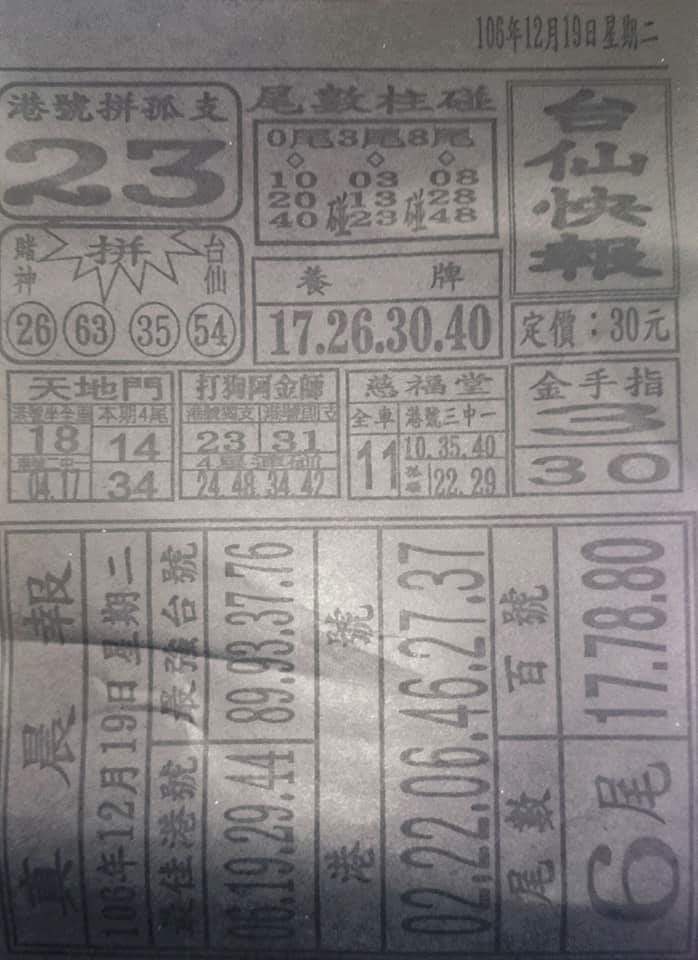 106年12月19日星期二
台仙快報
定價：30元
港號拼孤支
23
尾數柱碰
0尾3尾8尾
10 03 08
20碰13碰28
40 23 48
賭神 拼 台仙
26 63 35 54
養牌
17.26.30.40
天地門
本期4尾
18 14
04.17 34
打狗阿金師
港號獨支
23 31
24.48.34.42
慈福堂
全車 港號三中一
11 10.35.40
22.29
金手指
3
30
真晨報
106年12月19日星期二
最佳港號 最強台號
06.19.29.44 89.93.37.76
港號
02.22.06.46.27.37
尾數 百號
6尾 17.78.80